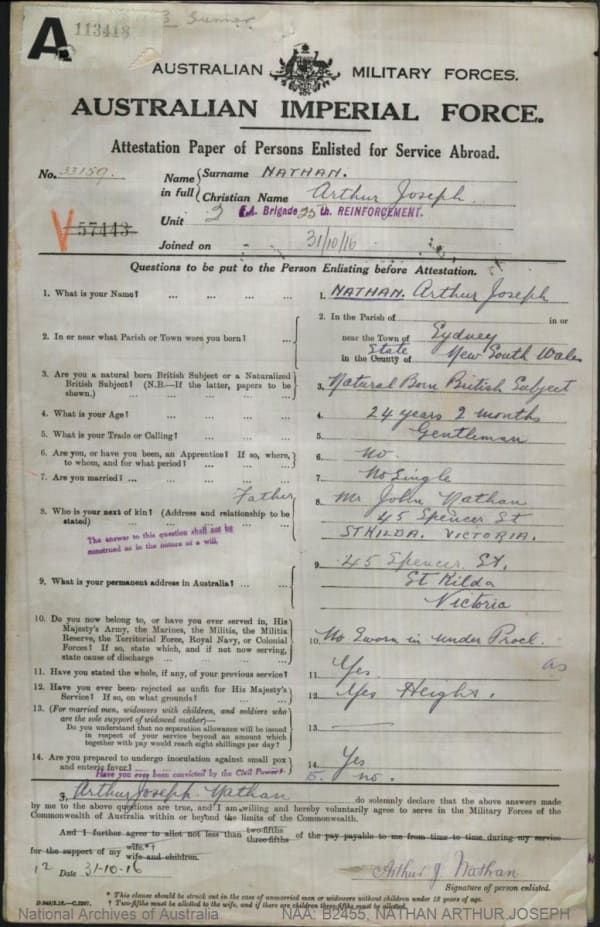 A
113418
AUSTRALIAN MILITARY FORCES.
AUSTRALIAN IMPERIAL FORCE.
Attestation Paper of Persons Enlisted for Service Abroad.
No. 33159. Name in full { Surname NATHAN.
Christian Name Arthur Joseph.
V 57443 Unit F.A. Brigade 25 th. REINFORCEMENT.
Joined on - 31/10/16
Questions to be put to the Person Enlisting before Attestation.
1. What is your Name? ... ... ... ... 1. NATHAN. Arthur Joseph
2. In or near what Parish or Town were you born? ... 2. In the Parish of in or
near the Town of Sydney
in the County of State New South Wales
3. Are you a natural born British Subject or a Naturalized
British Subject? (N.B.—If the latter, papers to be
shown.) ... ... ... 3. Natural Born British Subject
4. What is your Age? ... ... ... ... 4. 24 years 2 months
5. What is your Trade or Calling? ... ... ... 5. Gentleman
6. Are you, or have you been, an Apprentice? If so, where,
to whom, and for what period? ... ... ... 6. No.
7. Are you married? ... ... ... ... 7. No Single
8. Who is your next of kin? (Address and relationship to be
stated) Father 8. Mr John Nathan
45 Spencer St
ST KILDA. VICTORIA.
The answer to this question shall not be
construed as in the nature of a will.
9. What is your permanent address in Australia? ... ... 9. 45 Spencer St.
St Kilda
Victoria
10. Do you now belong to, or have you ever served in, His
Majesty's Army, the Marines, the Militia, the Militia
Reserve, the Territorial Force, Royal Navy, or Colonial
Forces? If so, state which, and if not now serving,
state cause of discharge ... ... ... 10. No Sworn in under Procl.
11. Have you stated the whole, if any, of your previous service? 11. Yes.
12. Have you ever been rejected as unfit for His Majesty's
Service? If so, on what grounds? ... ... 12. Yes Height.
as
13. (For married men, widowers with children, and soldiers who
are the sole support of widowed mother)—
Do you understand that no separation allowance will be issued
in respect of your service beyond an amount which
together with pay would reach eight shillings per day? 13. —
14. Are you prepared to undergo inoculation against small pox
and enteric fever? 14. Yes
Have you ever been convicted by the Civil Power? 15. no.
I, Arthur Joseph Nathan do solemnly declare that the above answers made
by me to the above questions are true, and I am willing and hereby voluntarily agree to serve in the Military Forces of the
Commonwealth of Australia within or beyond the limits of the Commonwealth.
And I further agree to allot not less than two-fifths three-fifths of the pay payable to me from time to time during my service
for the support of my wife.*† wife and children.
12 Date 31-10-16 Arthur J. Nathan
Signature of person enlisted.
* This clause should be struck out in the case of unmarried men or widowers without children under 18 years of age.
† Two-fifths must be allotted to the wife, and if there are children three-fifths must be allotted.
National Archives of Australia NAA: B2455, NATHAN ARTHUR JOSEPH